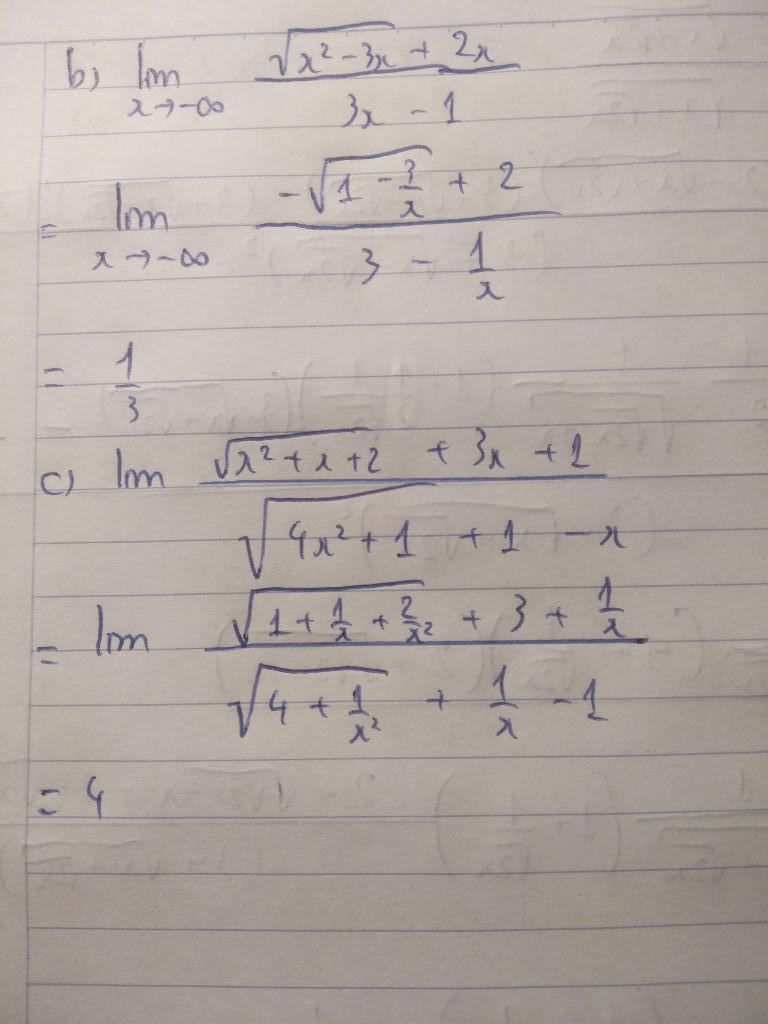 b) lim x→-∞ (√(x² - 3x) + 2x) / (3x - 1)
= lim x→-∞ (-√(1 - 3/x) + 2) / (3 - 1/x)
= 1/3
c) lim (√(x² + x + 2) + 3x + 1) / (√(4x² + 1) + 1 - x)
= lim (√(1 + 1/x + 2/x²) + 3 + 1/x) / (√(4 + 1/x²) + 1/x - 1)
= 4